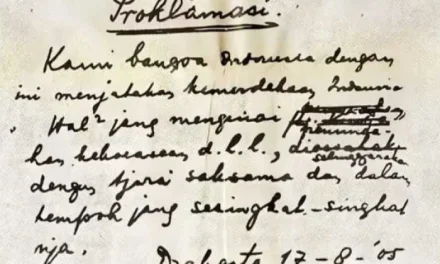 Proklamasi.
Kami bangsa Indonesia dengan
ini menjatakan kemerdekaan Indonesia
. Hal² jang mengenai
han kekoeasaan d.l.l.,
selenggarakan
dengan tjara saksama dan dalam
tempoh jang sesingkat-singkat
nja.
Djakarta 17-8-'05